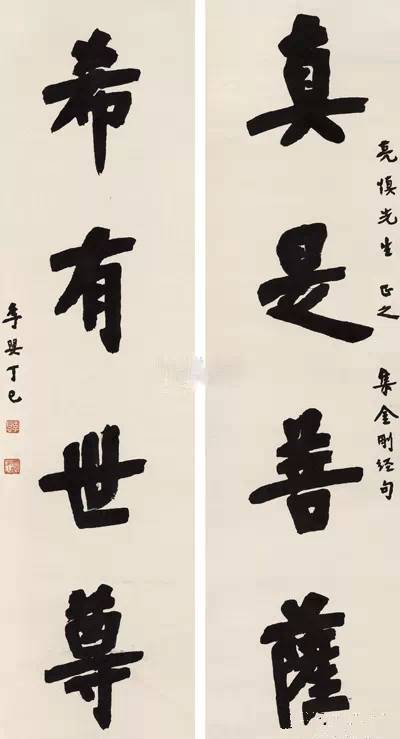 真是善薩
亮慎先生 正之 集金刚经句
希有世尊
丁巳